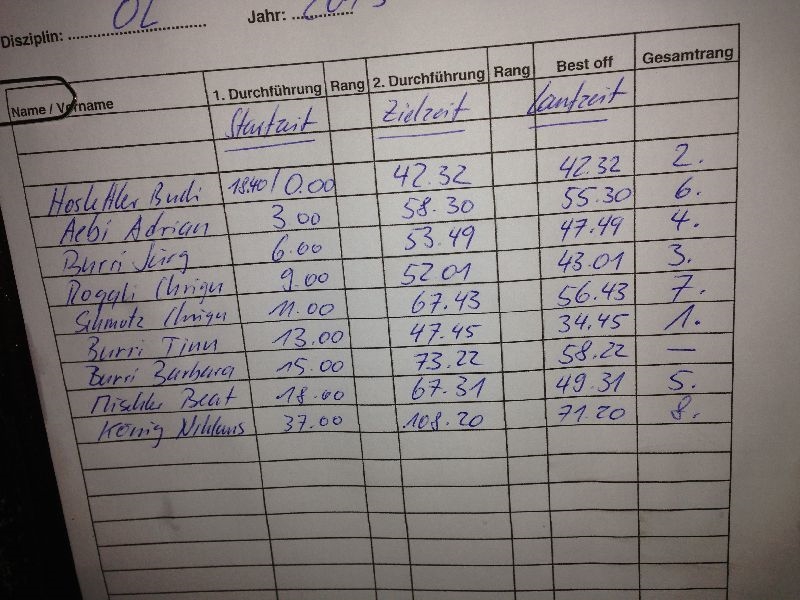 Disziplin: OL Jahr: 2013
Name / Vorname 1. Durchführung Rang 2. Durchführung Rang Best off Gesamtrang
Startzeit Zielzeit Laufzeit
Hostettler Budi 18.40 / 0.00 42.32 42.32 2.
Aebi Adrian 3 00 58.30 55.30 6.
Burri Jürg 6.00 53.49 47.49 4.
Roggli Chrigu 9.00 52 01 43.01 3.
Schmutz Chrigu 11.00 67.43 56.43 7.
Burri Tinu 13.00 47.45 34.45 1.
Burri Barbara 15.00 73.22 58.22 —
Mischler Beat 18.00 67.31 49.31 5.
König Niklaus 37.00 108.20 71.20 8.